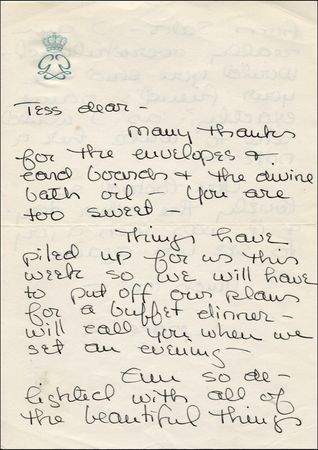 Tess dear -
Many thanks
for the envelopes &
card boards & the divine
bath oil - You are
too sweet -
Things have
piled up for us this
week so we will have
to put off our plans
for a buffet dinner -
will call you when we
set an evening -
Am so de-
lighted with all of
the beautiful things